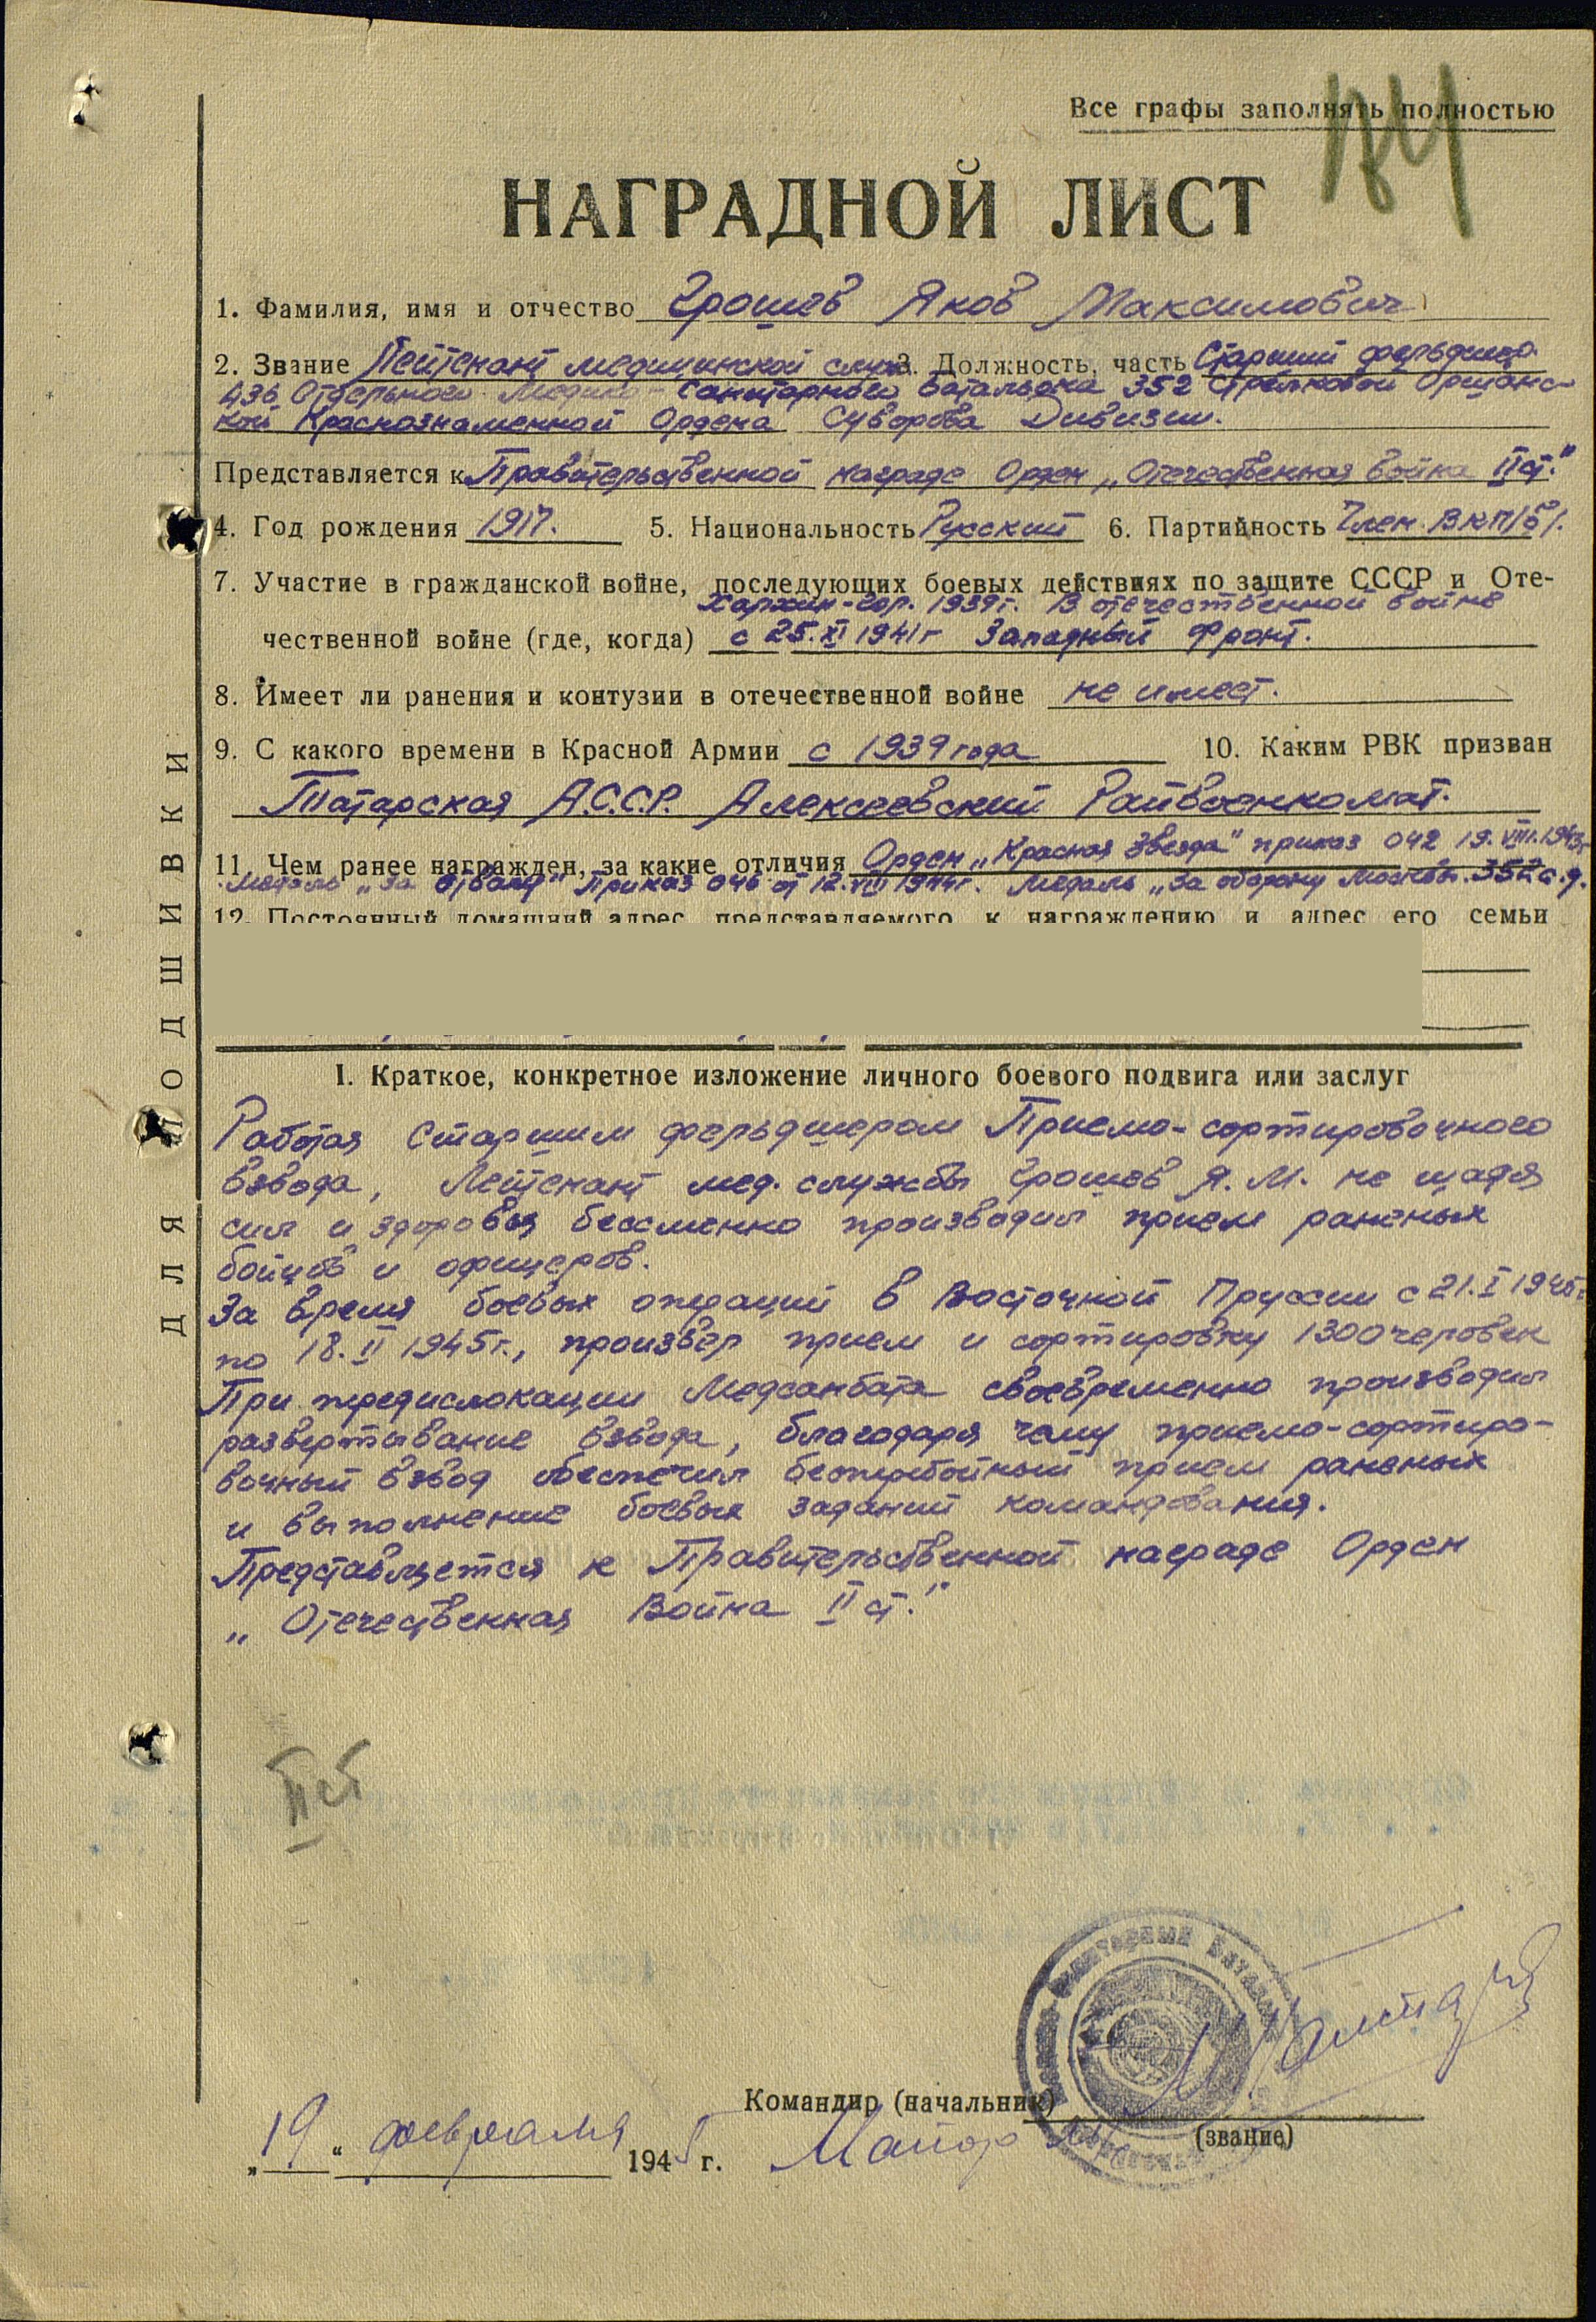 Все графы заполнять полностью
НАГРАДНОЙ ЛИСТ
1. Фамилия, имя и отчество Грошев Яков Максимович
2. Звание Лейтенант медицинской служ. 3. Должность, часть Старший фельдшер
436 Отдельного Медико-Санитарного батальона 352 Стрелковой Оршанс-
кой Краснознаменной Ордена Суворова Дивизии.
Представляется к Правительственной награде Орден „Отечественная война II ст."
4. Год рождения 1917. 5. Национальность Русский 6. Партийность Член ВКП/б/.
7. Участие в гражданской войне, последующих боевых действиях по защите СССР и Оте-
Халхин-Гол. 1939 г. В отечественной войне
чественной войне (где, когда) с 25.XI 1941 г Западный фронт.
8. Имеет ли ранения и контузии в отечественной войне не имеет.
9. С какого времени в Красной Армии с 1939 года 10. Каким РВК призван
Татарская А.С.С.Р. Алексеевский Райвоенкомат.
11. Чем ранее награжден, за какие отличия Орден „Красная Звезда" приказ 042 19.VIII.1943г
Медаль „За отвагу" Приказ 046 от 12.VII 1944г. Медаль „За оборону Москвы. 352 с.д.
12. Постоянный домашний адрес представляемого к награждению и адрес его семьи
ДЛЯ ПОДШИВКИ
I. Краткое, конкретное изложение личного боевого подвига или заслуг
Работая Старшим фельдшером Приемо-сортировочного
взвода, Лейтенант мед. службы Грошев Я. М. не щадя
сил и здоровья бессменно производил прием раненых
бойцов и офицеров.
За время боевых операций в Восточной Пруссии с 21.I 1945г
по 18.II 1945г., произвел прием и сортировку 1300 человек
При передислокации Медсанбата своевременно производил
развертывание взвода, благодаря чему приемо-сортиро-
вочный взвод обеспечил бесперебойный прием раненых
и выполнение боевых заданий командования.
Представляется к Правительственной награде Орден
„Отечественная Война II ст."
II ст
Командир (начальник)
Майор
(звание)
„19" февраля 1945 г.